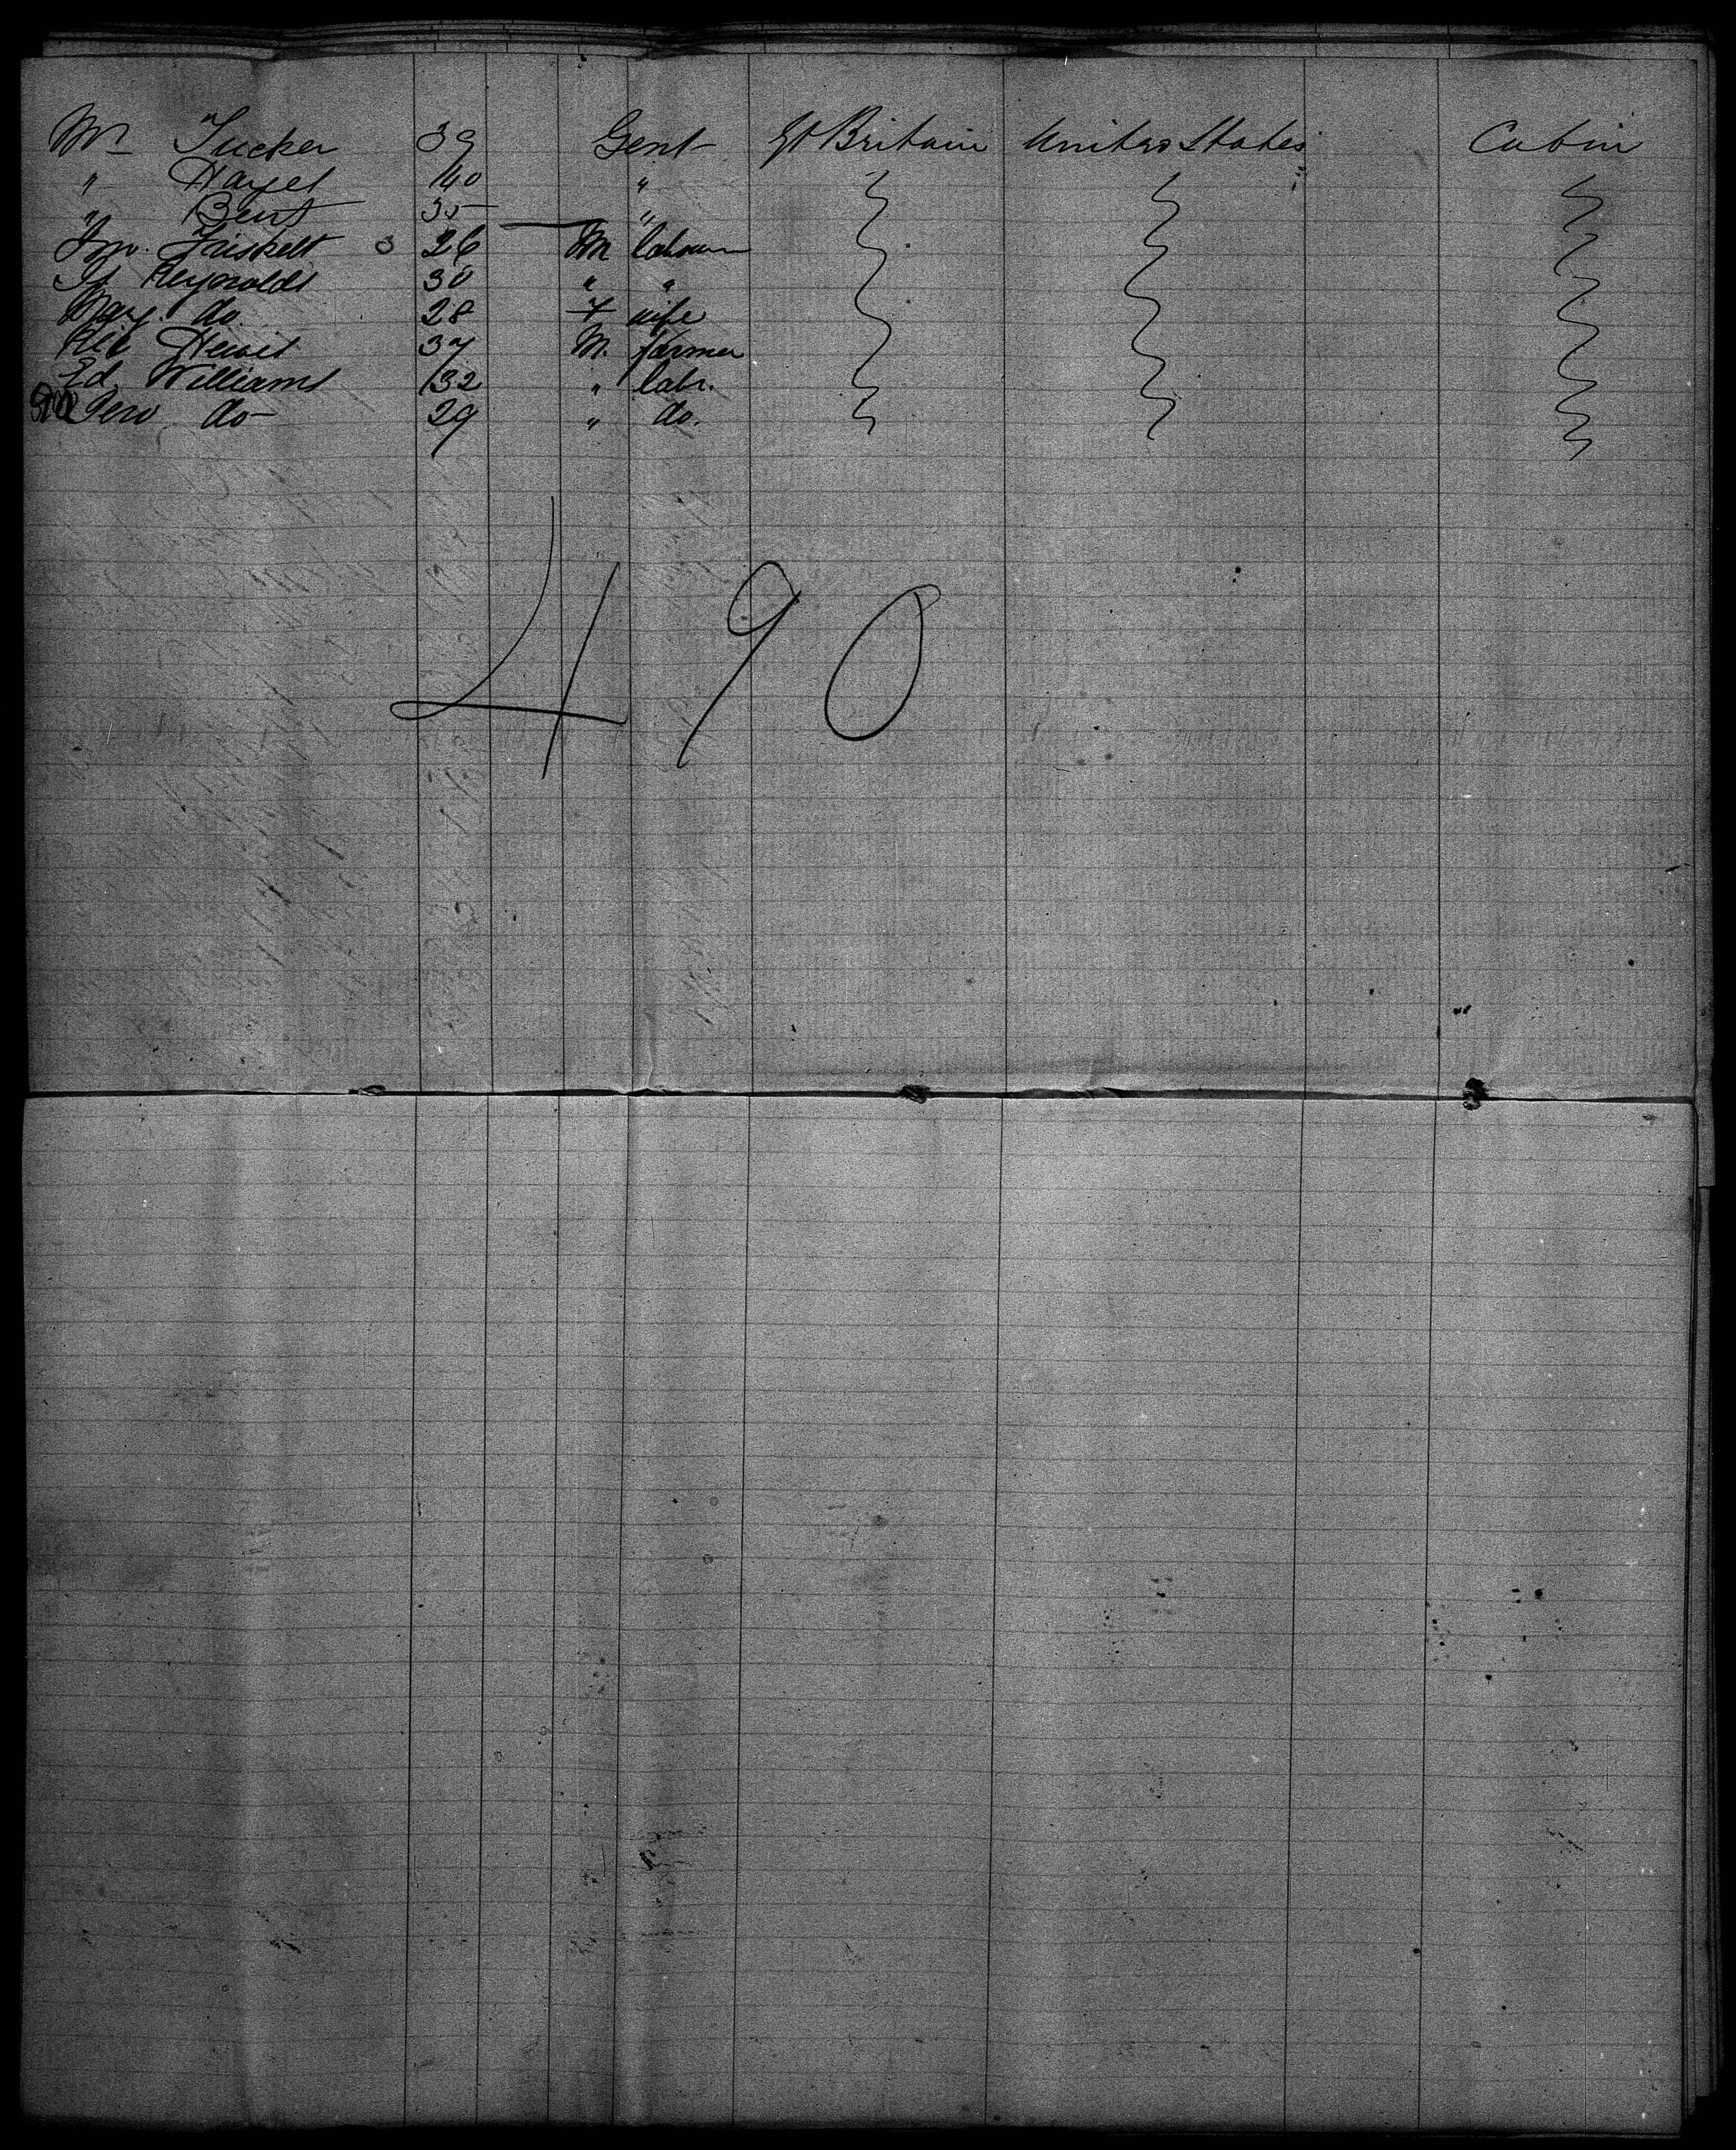 Mr Tucker 39 Gent Gt Britain United States Cabin
" Hayes 40 "
" Bent 35 "
Jno. Triskett 26 M labourer
Reynolds 30 " "
Mary do. 28 F wife
37 M. farmer
Ed. Williams 32 " labr.
do- 29 " do.
490